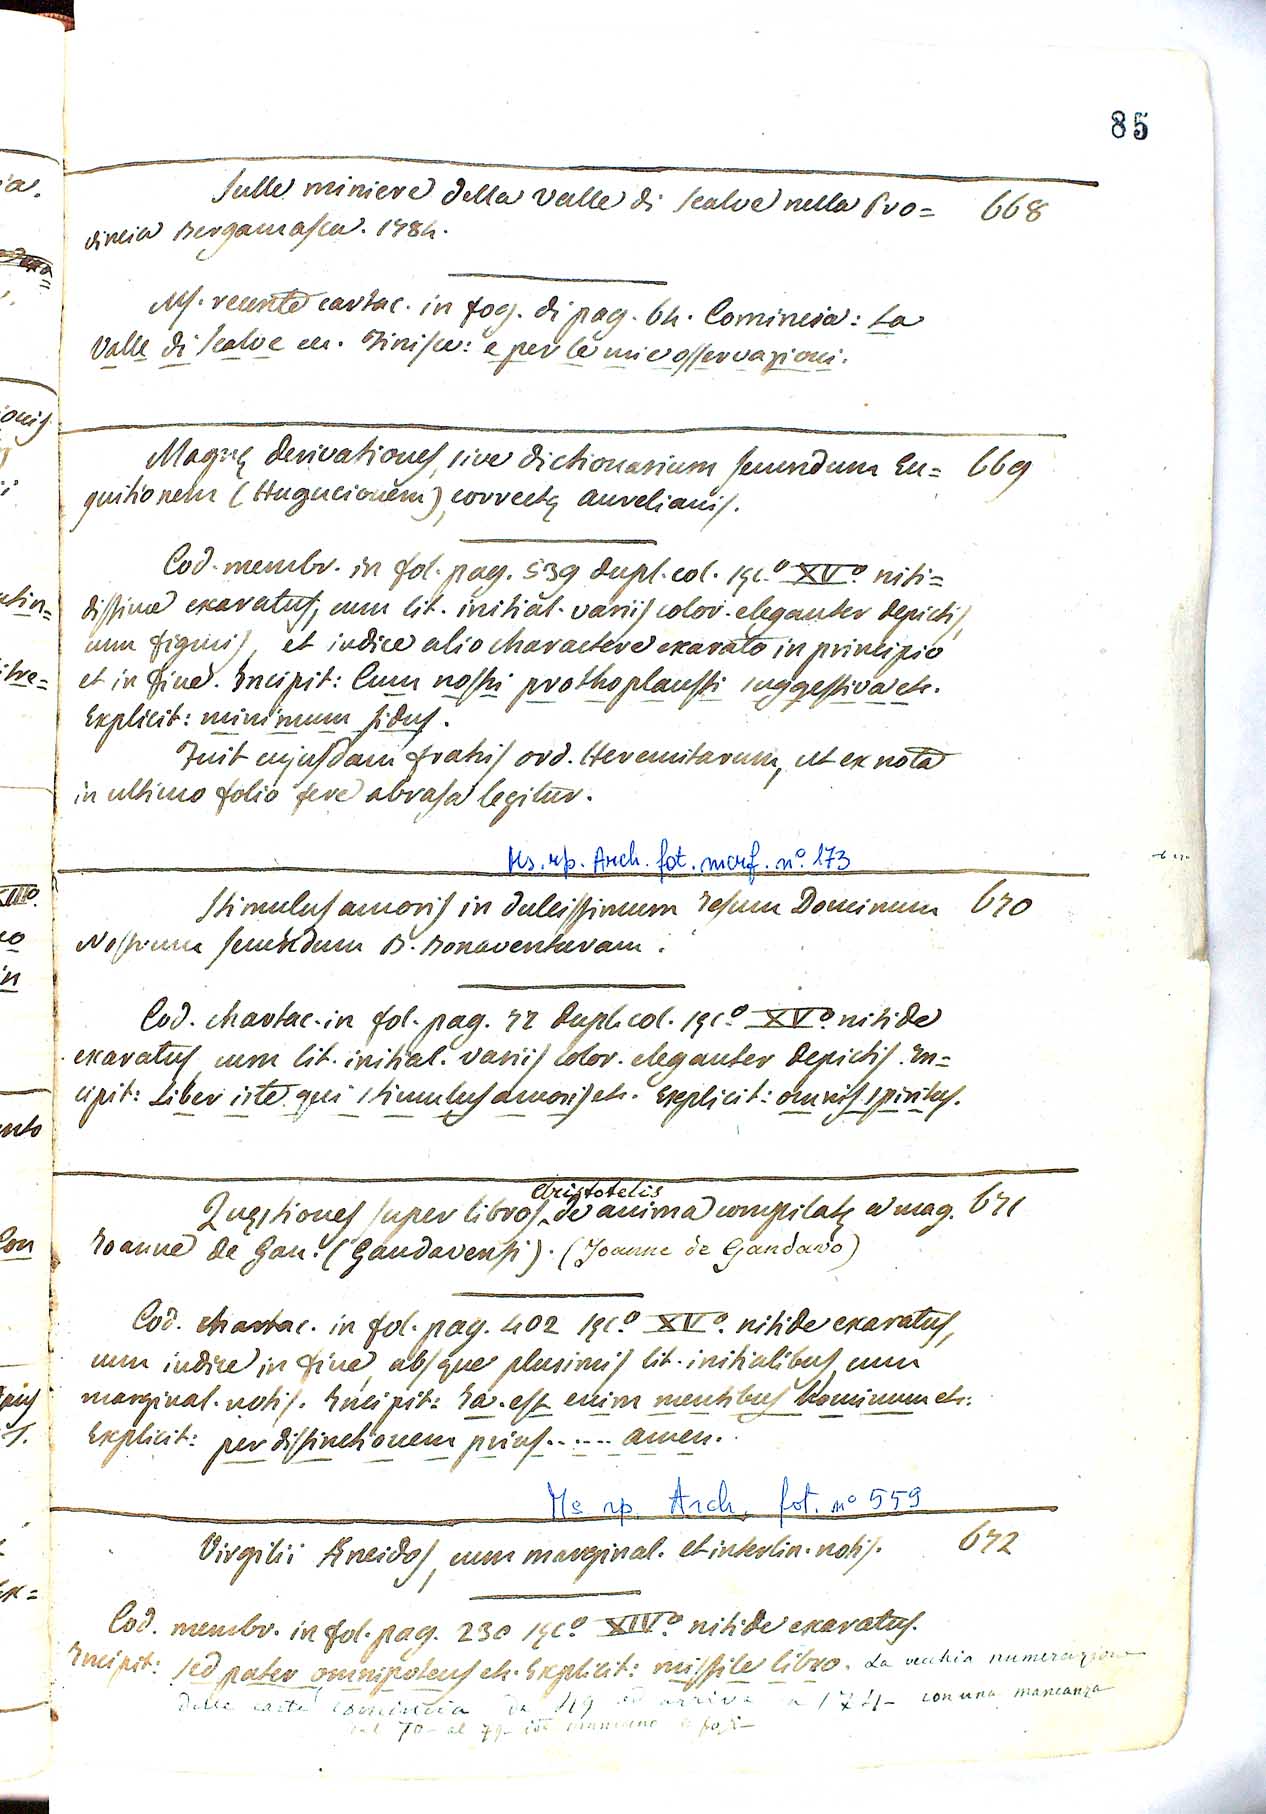 85
Sulle miniere della Valle di Scalve nella Pro= 668
vincia Bergamasca. 1784.
Ms. recente cartac. in fog. di pag. 64. Comincia: La
Valle di Scalve ec. Finisce: e per le mie osservazioni.
Magnę derivationes, sive dictionarium secundum Eu= 669
guitionem (Hugucionem), correctę aurelianis.
Cod. membr. in fol. pag. 539 dupl. col. sęc.º XVº. niti=
dissime exaratus, cum lit. initial. variis color. eleganter depictis,
cum figuris, et indice alio charactere exarato in principio
et in fine. Incipit: Cum nostri prothoplausti suggestiva etc.
Explicit: minimum sidus.
Fuit cujusdam fratris ord. Heremitarum, ut ex nota
in ultimo folio fere abrasa legitur.
Ms. rp. Arch. fot. mcrf. nº. 173
Stimulus amoris in dulcissimum Jesum Dominum 670
Nostrum secundum B. Bonaventuram.
Cod. chartac. in fol. pag. 72 dupl. col. sęc.º XVº. nitide
exaratus cum lit. initial. variis color. eleganter depictis. In=
cipit: Liber iste qui stimulus amoris etc. Explicit: omnis spiritus.
Aristotelis
Quęstiones super libros de anima compilatę a mag. 671
Joanne de Gan. (Gandavensi). (Joanne de Gandavo)
Cod. chartac. in fol. pag. 402 sęc.º XVº. nitide exaratus,
cum indice in fine, absque plurimis lit. initialibus, cum
marginal. notis. Incipit: Ia. est enim mentibus hominum etc.
Explicit: per distinctionem prius...... amen.
Ms rp. Arch. fot. nº 559
Virgilii Æneidos, cum marginal. et interlin. notis. 672
Cod. membr. in fol. pag. 230 sęc.º XIVº. nitide exaratus.
Incipit: sed pater omnipotens etc. Explicit: missile libro. La vecchia numerazione
delle carte comincia da 49 ed arriva a 174 con una mancanza
dal 70 al 79